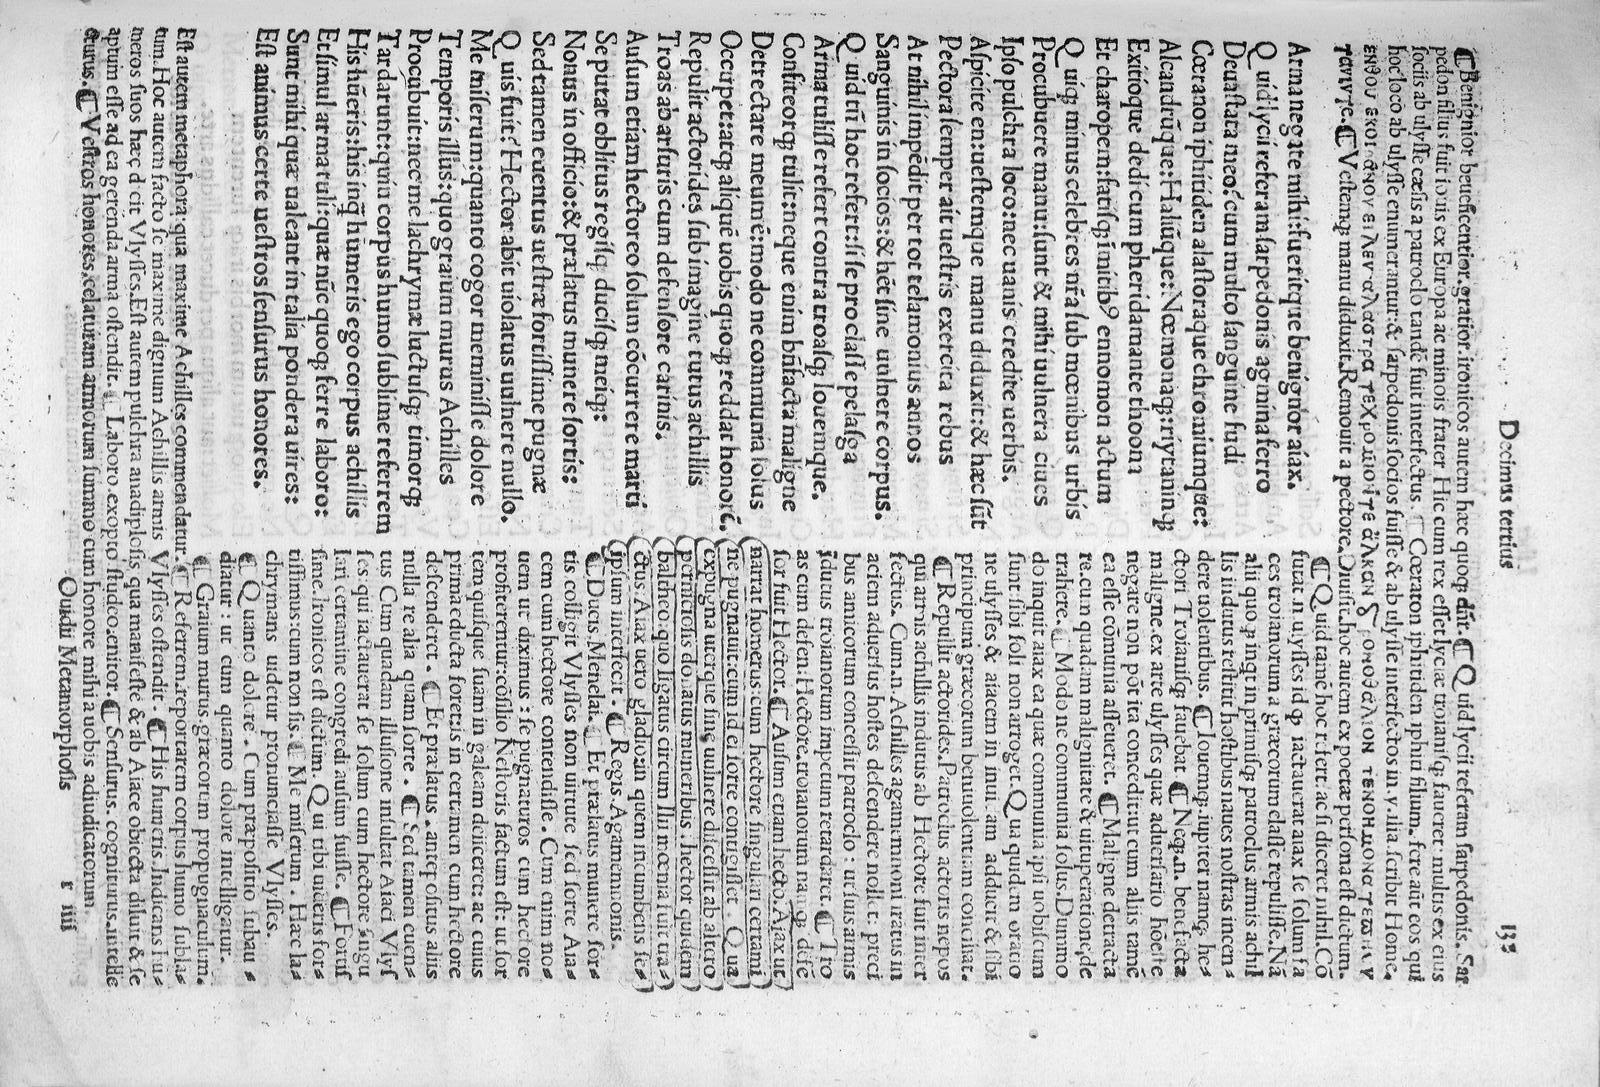 Decimus tertius 133
⁋Benignior. beneficentior, gratior. ironicos autem hæc quoq; dn̄t ⁋Quid lycii referam sarpedonis. Sar
pedon filius fuit iouis ex Europa ac minois frater Hic cum rex esset lyciæ troianisq; faueret multus ex eius
sociis ab ulysse cæsis a patroclo tandē fuit interfectus ⁋Cœraton iphitiden iphiti filium. fere ait eos qui
hoc loco ab ulysse enumerantur: & sarpedonis socios fuisse & ab ulysse interfectos in
ταινιγε. ⁋Vestemq; manu diduxit. Remouit a pectore. Diuisit. hoc autem ex poetæ persona est dictum.
Arma negate mihi: fueritque benignior aiax.
Quid lycii referam sarpedonis agmina ferro
Deuastata meo? cum multo sanguine fudi
Cœranon iphitiden alastoraque chromiumque:
Alcandrūque: Haliūque: Nœmonaq; prytaninq;
Exitioque dedi cum pheridamante thoona
Et charopem: fatisq; īmitibꝰ ennomon actum
Quiq; minus celebres nr̄a sub mœnibus urbis
Procubuere manu: sunt & mihi uulnera ciues
Ipso pulchra loco: nec uanis credite uerbis.
Aspicite en: uestemque manu diduxit: & hæc sūt
Pectora semper ait uestris exercita rebus
At nihil impēdit per tot telamonius annos
Sanguinis in socios: & hēt sine uulnere corpus.
Quid tn̄ hoc refert: si se pro classe pelasga
Arma tulisse refert contra troasq; Iouemque.
Confiteorq; tulit: neque enim bn̄facta maligne
Detrectare meum ē: modo ne communia solus
Occupet: atq; aliquē uobis quoq; reddat honorē.
Repulit actorides sub imagine tutus achillis
Troas ab arsuris cum defensore carinis.
Ausum etiam hectoreo solum cōcurrere marti
Se putat oblitus regisq; ducisq; meiq;:
Nonus in officio: & prælatus munere sortis:
Sed tamen euentus uestræ fortissime pugnæ
Quis fuit? Hector abit uiolatus uulnere nullo.
Me miserum: quanto cogor meminisse dolore
Temporis illius: quo graium murus Achilles
Procubuit: nec me lachrymæ luctusq; timorq;
Tardarunt: quin corpus humo sublime referrem
His hūeris: his inq̄ humeris ego corpus achillis
Et simul arma tuli: quæ nūc quoq; ferre laboro:
Sunt mihi quæ ualeant in talia pondera uires:
Est animus certe uestros sensurus honores.
⁋Quid tamē hoc refert: ac si diceret nihil. Cō
futat n. ulysses id q; iactauerat aiax se solum fa
ces troianorum a græcorum classe repulisse. Nā
alii quoq; inqt in primisq; patroclus armis achil
lis indutus restitit hostibus nostras incen⸗
dere uolentibus. ⁋Iouenq;. iupiter namq; he⸗
ctori Troianisq; fauebat ⁋Neq;. n. benefacta
maligne. ex arte ulysses quæ aduersario hōeste
negare non pōt ita concedit: ut cum aliis tamē
ea esse cōmunia asseueret. ⁋Maligne detracta
re. cum quadam malignitate & uituperatione, de
trahere. ⁋Modo ne communia solus. Dummo
do inquit aiax ea quæ communia ipsi uobiscum
sunt sibi soli non arroget. Qua quidem oratio
ne ulysses & aiacem in inuidiam adducit & sibi
principum græcorum beniuolentiam conciliat.
⁋Repulit actorides. Patroclus actoris nepos
qui armis achillis indutus ab Hectore fuit inter
fectus. Cum. n. Achilles agamemnoni iratus in
aciem aduersus hostes descendere nollet: preci
bus amicorum concessit patroclo: ut suis armis
īdutus troianorum impetum retardaret. ⁋Tro
as cum defen. Hectore. troianorum nāq; defē
sor fuit Hector. ⁋Ausum etiam hecto. Aiax ut
narrat homerus: cum hectore singulari certami
ne pugnauit: cum id ei sorte contigisset. Qua
expugna uterque sine uulnere discessit ab altero
pernitiosis donatus muneribus. hector quidem
baltheo: quo ligatus circum Ilii mœnia fuit tra⸗
ctus Aiax uero gladio: in quem incumbens se⸗
ipsum interfecit. ⁋Regis Agamemnonis.
⁋Ducis Menelai. ⁋Et prælatus munere sor⸗
tis colligit Vlysses non uirtute sed sorte Aia⸗
cem cum hectore contendisse. Cum enim no⸗
uem ut diximus: se pugnaturos cum hectore
profiterentur: cōsilio Nestoris factum est: ut sor
tem quisque suam in galeam deiiceret: ac cuius
prima educta foret: is in certamen cum hectore
descenderet. ⁋Et prælatus. antepositus aliis
nulla re alia quam sorte. ⁋Sed tamen euen⸗
tus Cum quadam illusione insultat Aiaci Vlys
ses qui iactauerat se solum cum hectore singu
lari certamine congredi ausum fuisse. ⁋Fortis
sime. Ironicos est dictum. Qui tibi uideris for⸗
tissimus: cum non sis. ⁋Me miserum. Hæc la⸗
chrymans uidetur pronunciasse Vlysses.
⁋Quanto dolore. Cum præpositio subau⸗
diatur: ut cum quanto dolore intelligatur.
⁋Graium murus græcorum propugnaculum.
⁋Referrem. reportarem corpus humo sublas⸗
Est autem metaphora qua maxime Achilles commendatur. ⁋His humeris. Indicans hu⸗
tum. Hoc autem facto se maxime dignum Achillis armis Vlysses ostendit.
meros suos hæc dicit Vlysses. Est autem pulchra anadiplosis, qua manifeste & ab Aiace obiecta diluit & se
aptum esse ad ea gerenda arma ostendit. ⁋Laboro. exopto studeo. enitor. ⁋Sensurus. cogniturus. intelle
cturus. ⁋Vestros honores. cælaturam armorum summo cum honore mihi a uobis adiudicatorum.
Ouidii Metamorphosis r iiii